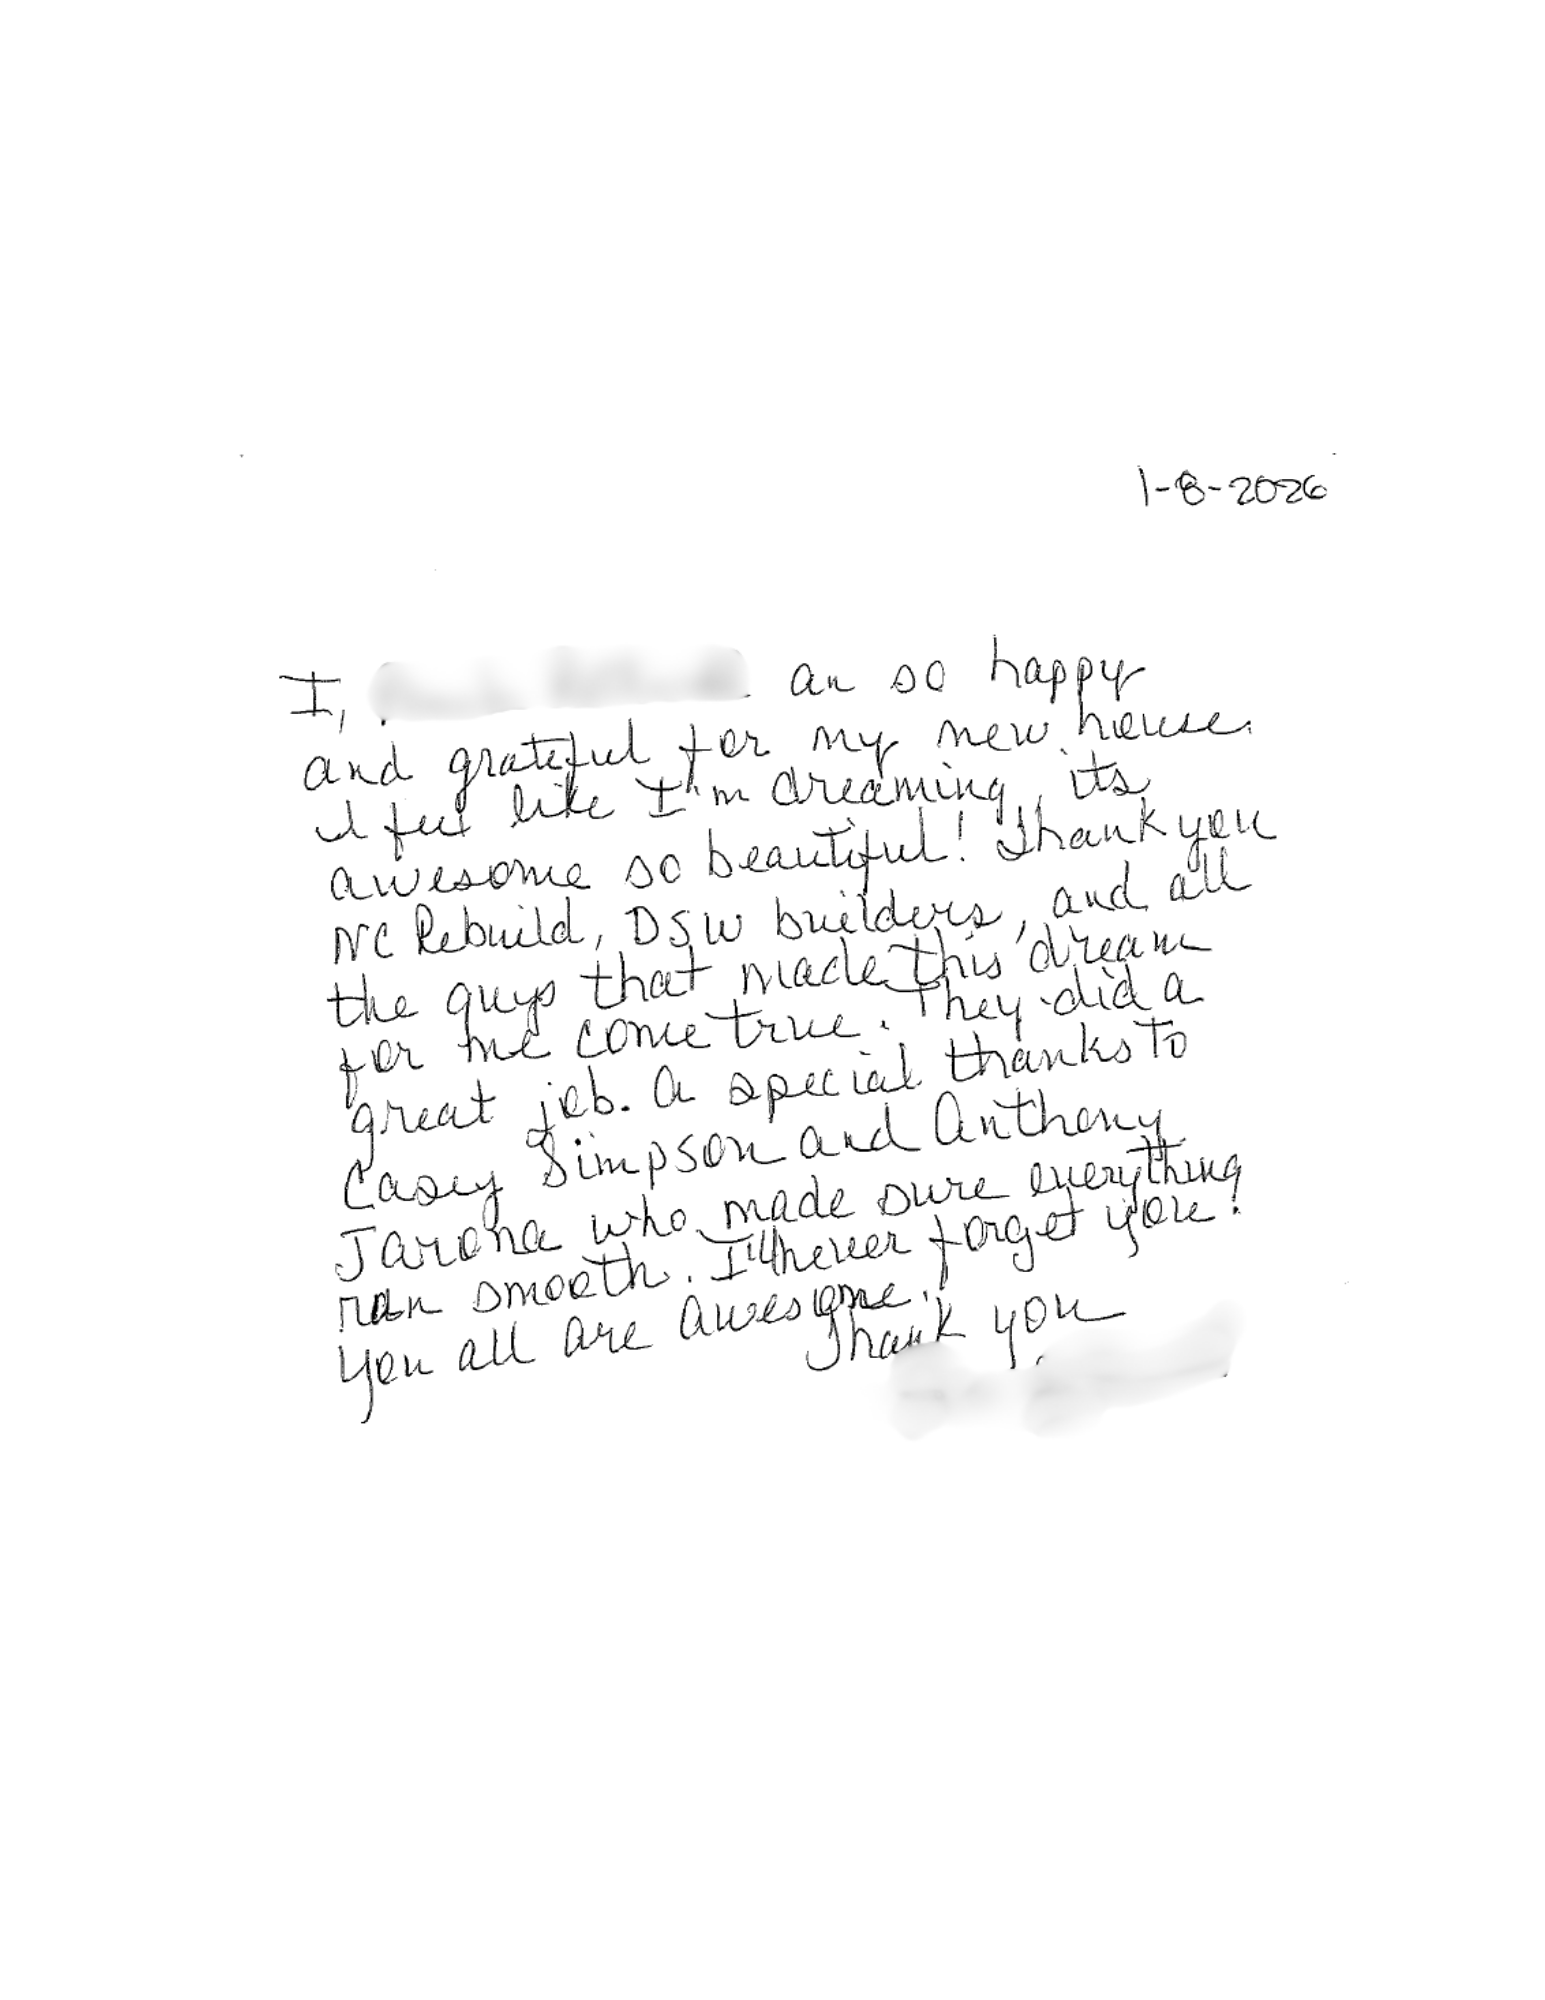 1-8-2026
I, am so happy
and grateful for my new house.
I feel like I'm dreaming, its
awesome so beautiful! Thank you
NC Rebuild, DSW builders, and all
the guys that made this dream
for me come true. They did a
great job. A special thanks to
Casey Simpson and Anthony
Jarona who made sure everything
ran smooth. I'll never forget you!
You all are awesome.
Thank you